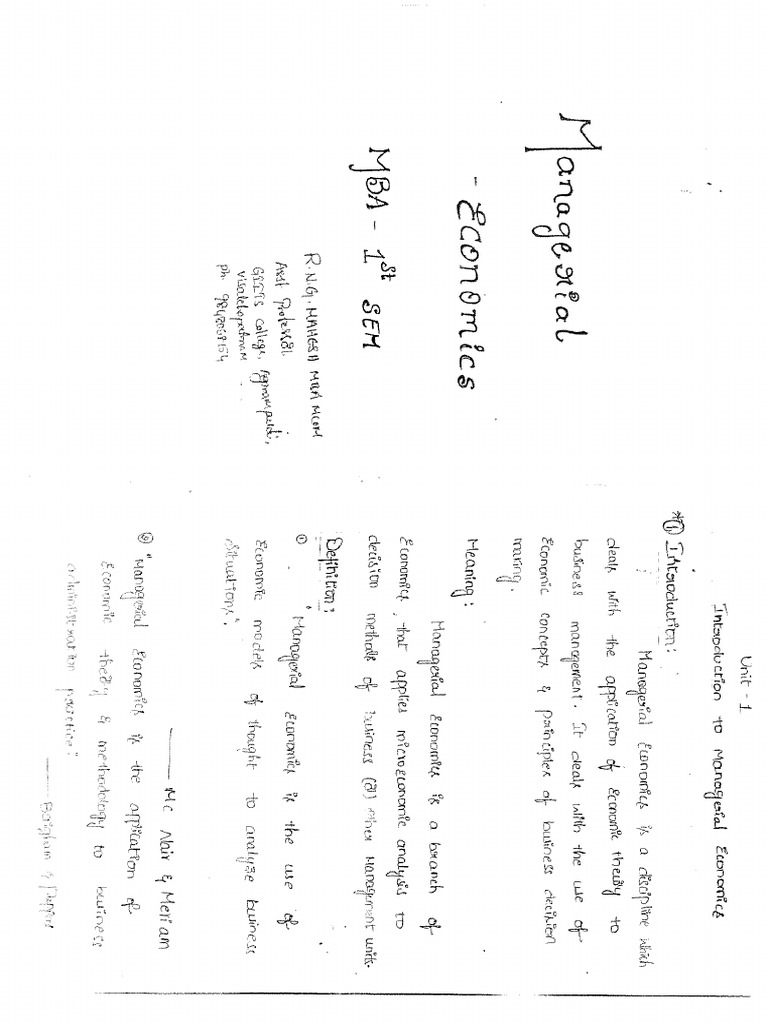 Managerial
- Economics
MBA - 1st SEM
R.N.G. MAHESH MBA MCOM
Asst Professor
College,
visakhapatnam
Ph. 9848068154
Unit - 1
Introduction to Managerial Economics
* ① Introduction:
Managerial Economics is a discipline which
deals with the application of Economic theory to
business management. It deals with the use of
Economic concepts & principles of business decision
making.
Meaning:
Managerial Economics is a branch of
Economics, that applies microeconomic analysis to
decision methods of business (or) other management units.
Definition:
① "Managerial Economics is the use of
Economic models of thought to analyze business
situations".
—— Mc Nair & Meriam
② "Managerial Economics is the application of
Economic theory & methodology to business
administration practice".
—— Brigham & Pappas